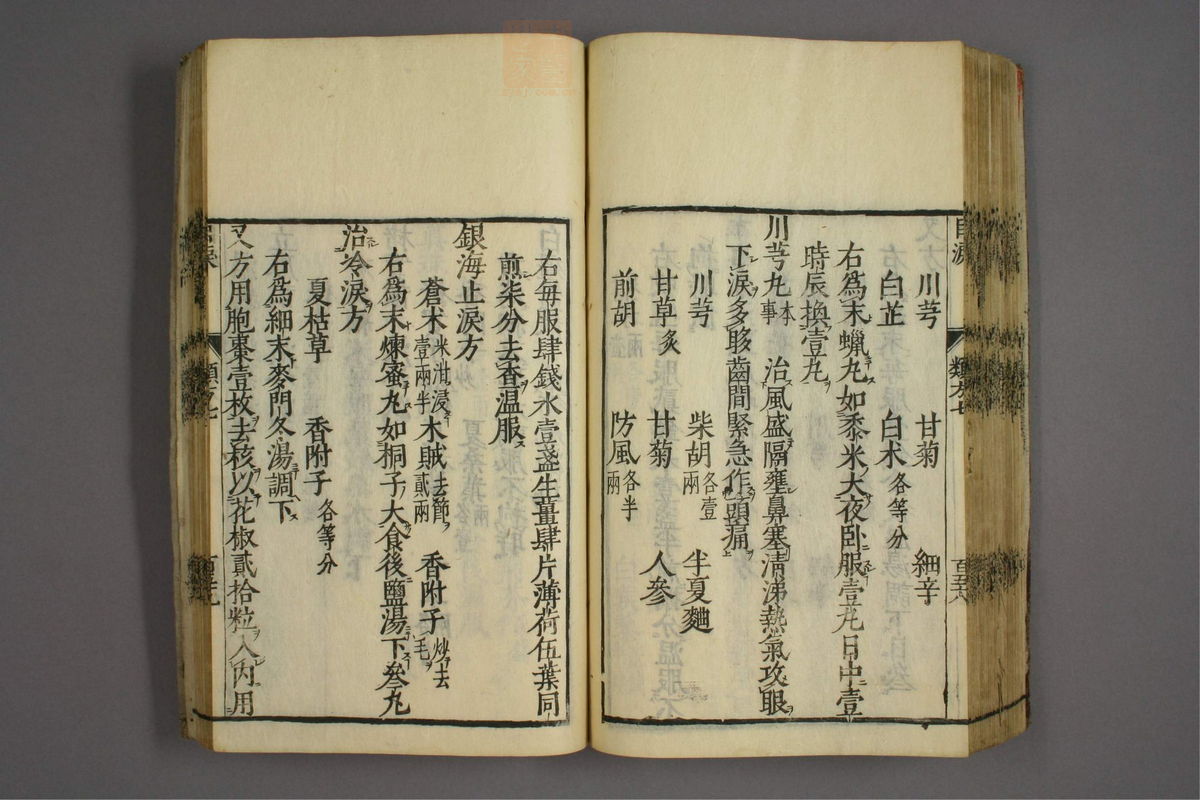 川芎 甘菊 細辛
白芷 白朮各等分
右爲末蠟丸如黍米大夜臥服壹丸日中壹
時辰換壹丸
川芎丸本事 治風盛隔壅鼻塞清涕熱氣攻眼
下淚多眵齒間緊急作頭痛
川芎 柴胡各壹兩 半夏麯
甘草炙 甘菊 人參
前胡 防風各半兩
右每服肆錢水壹盞生薑肆片薄荷伍葉同
煎柒分去柤溫服
銀海止淚方
蒼朮米泔浸壹兩半 木賊去節貳兩 香附子炒去毛
右爲末煉蜜丸如桐子大食後鹽湯下叁丸
治冷淚方
夏枯草 香附子各等分
右爲細末麥門冬湯調下
又方用胞棗壹枚去核以花椒貳拾粒入內用